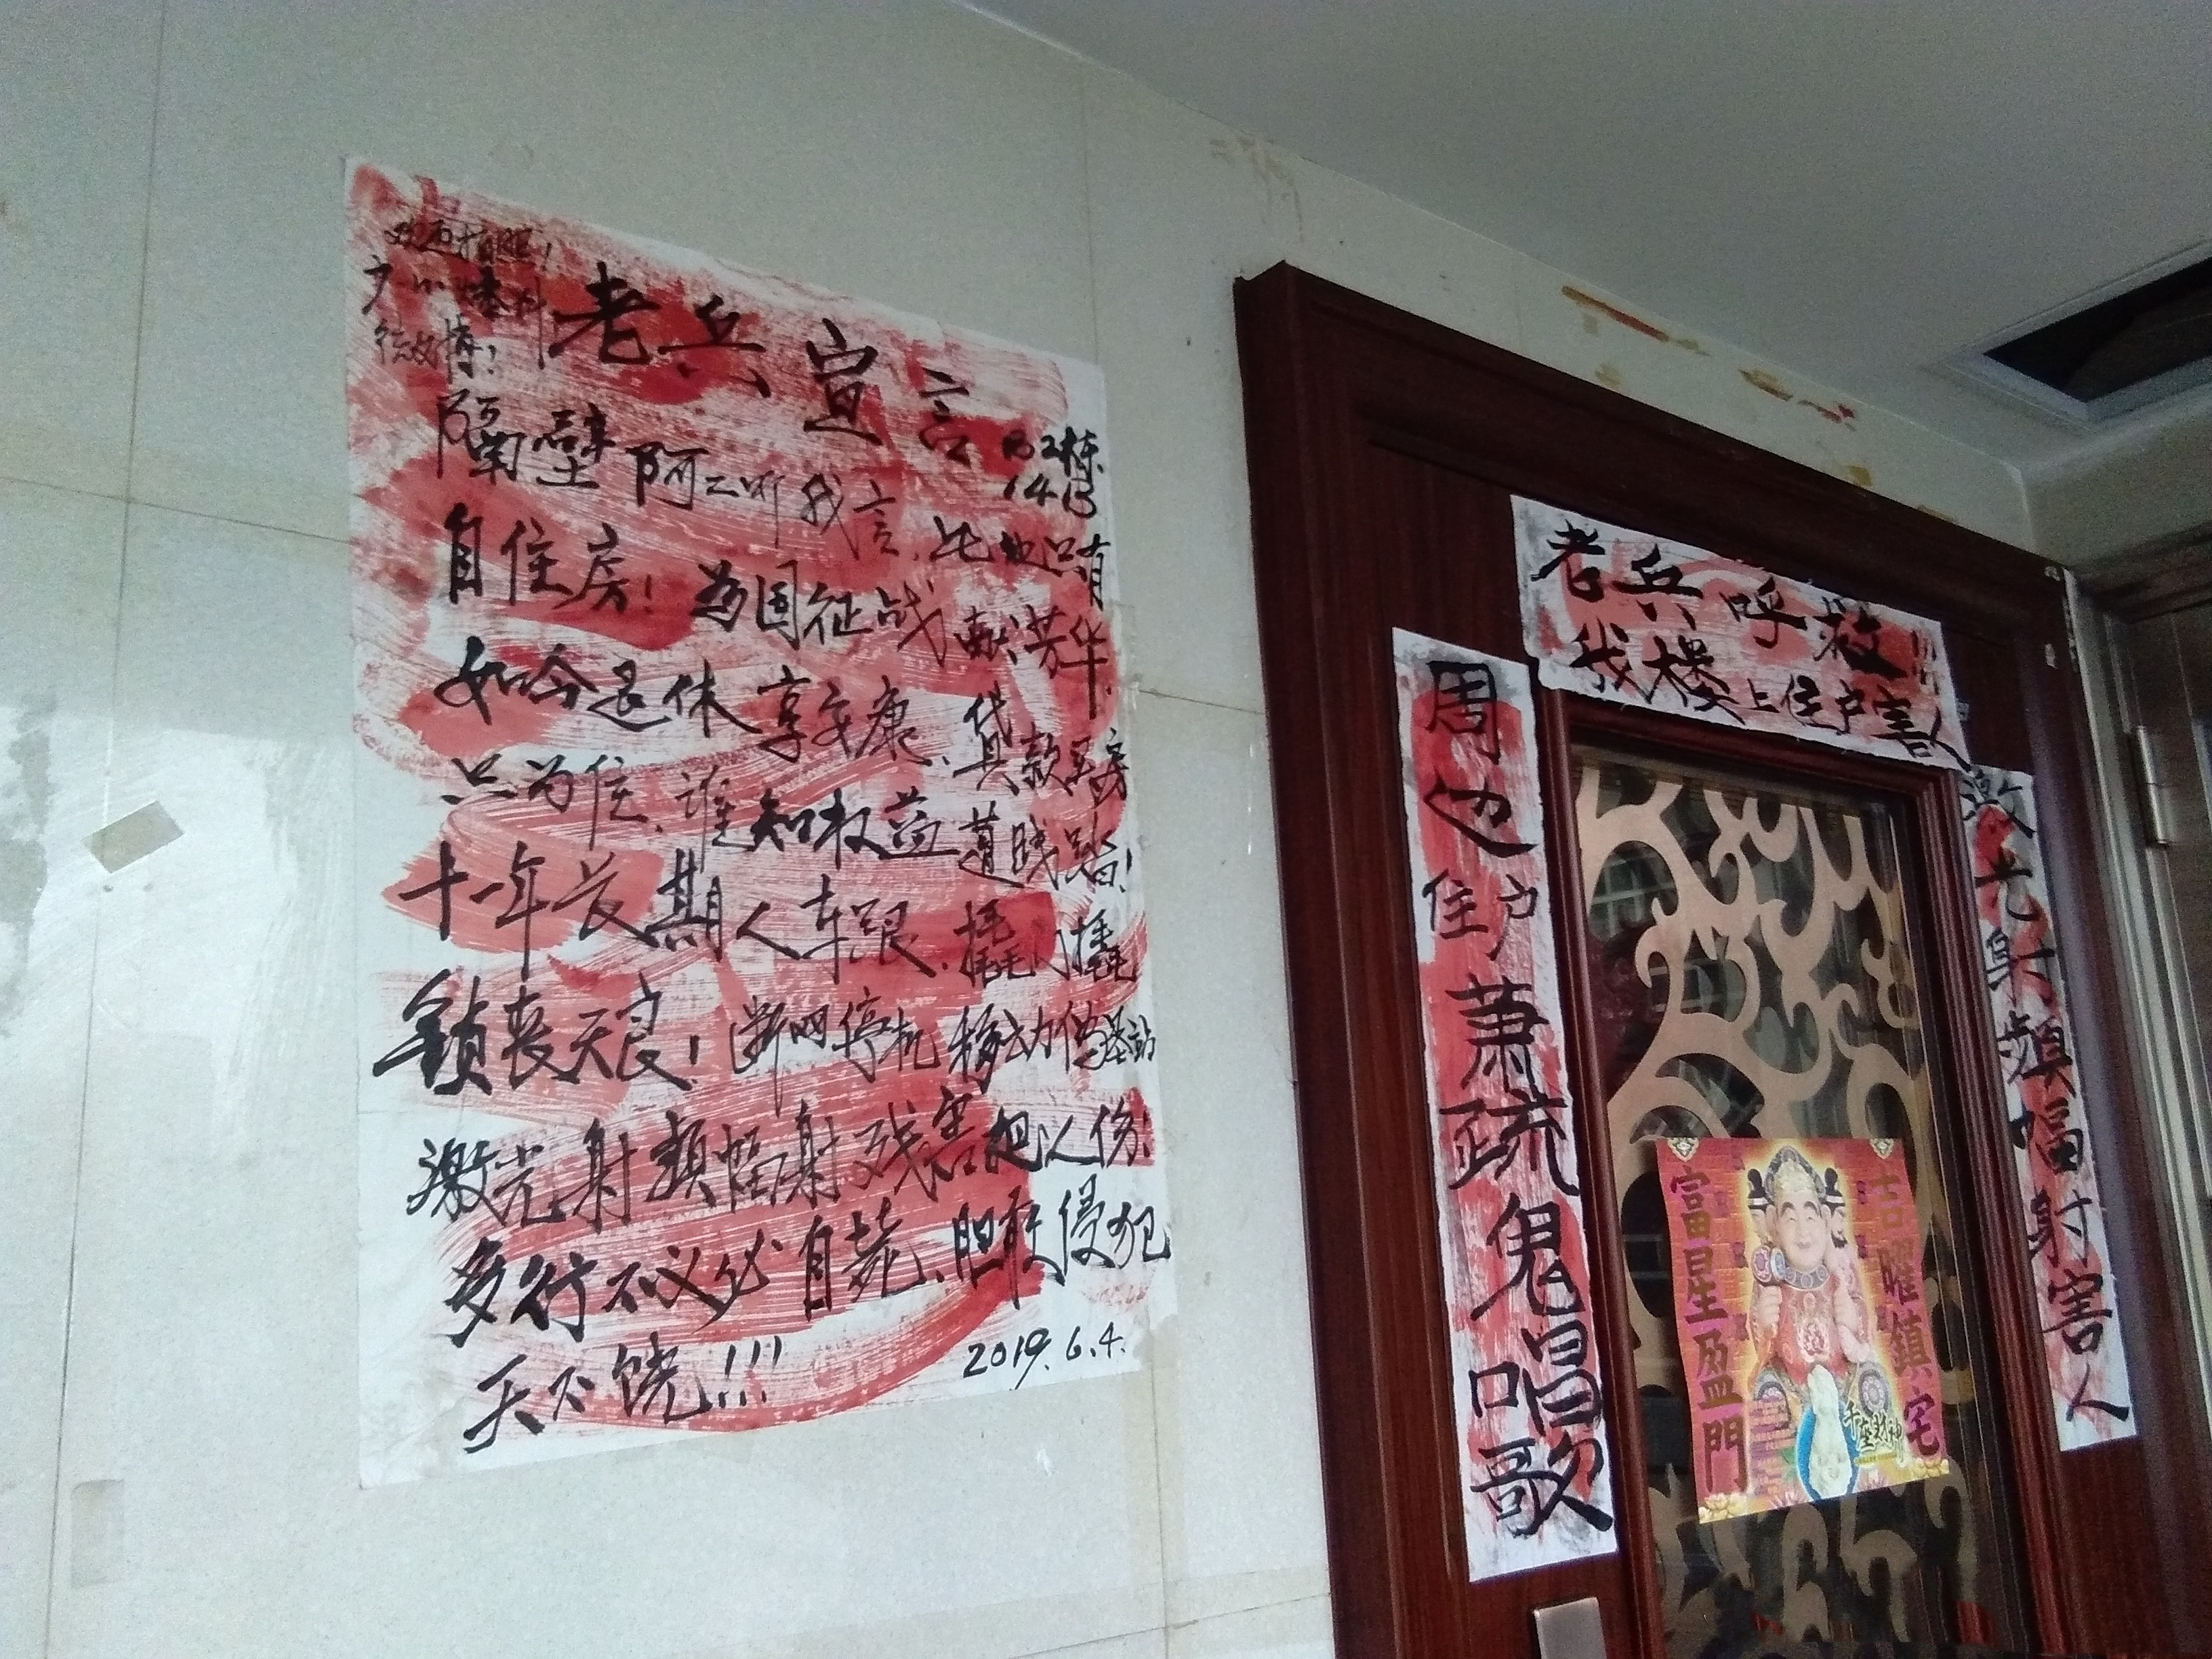 欢迎拍照!
老兵宣言
B2栋
1413
隔壁阿二听我言,此地只有
自住房!为国征战献芳华.
如今退休享安康,贷款买房
只为住,谁知权益遭践踏!
十一年长期人车跟,撬门撬
锁丧天良!断网停机移动伪基站
激光射频辐射残害把人伤!
多行不义必自毙,胆敢侵犯
天不饶!!!
2019.6.4.
老兵呼救!!!
我楼上住户害人
周边住户萧疏鬼唱歌
激光射频辐射害人
吉曜鎮宅
富星盈門